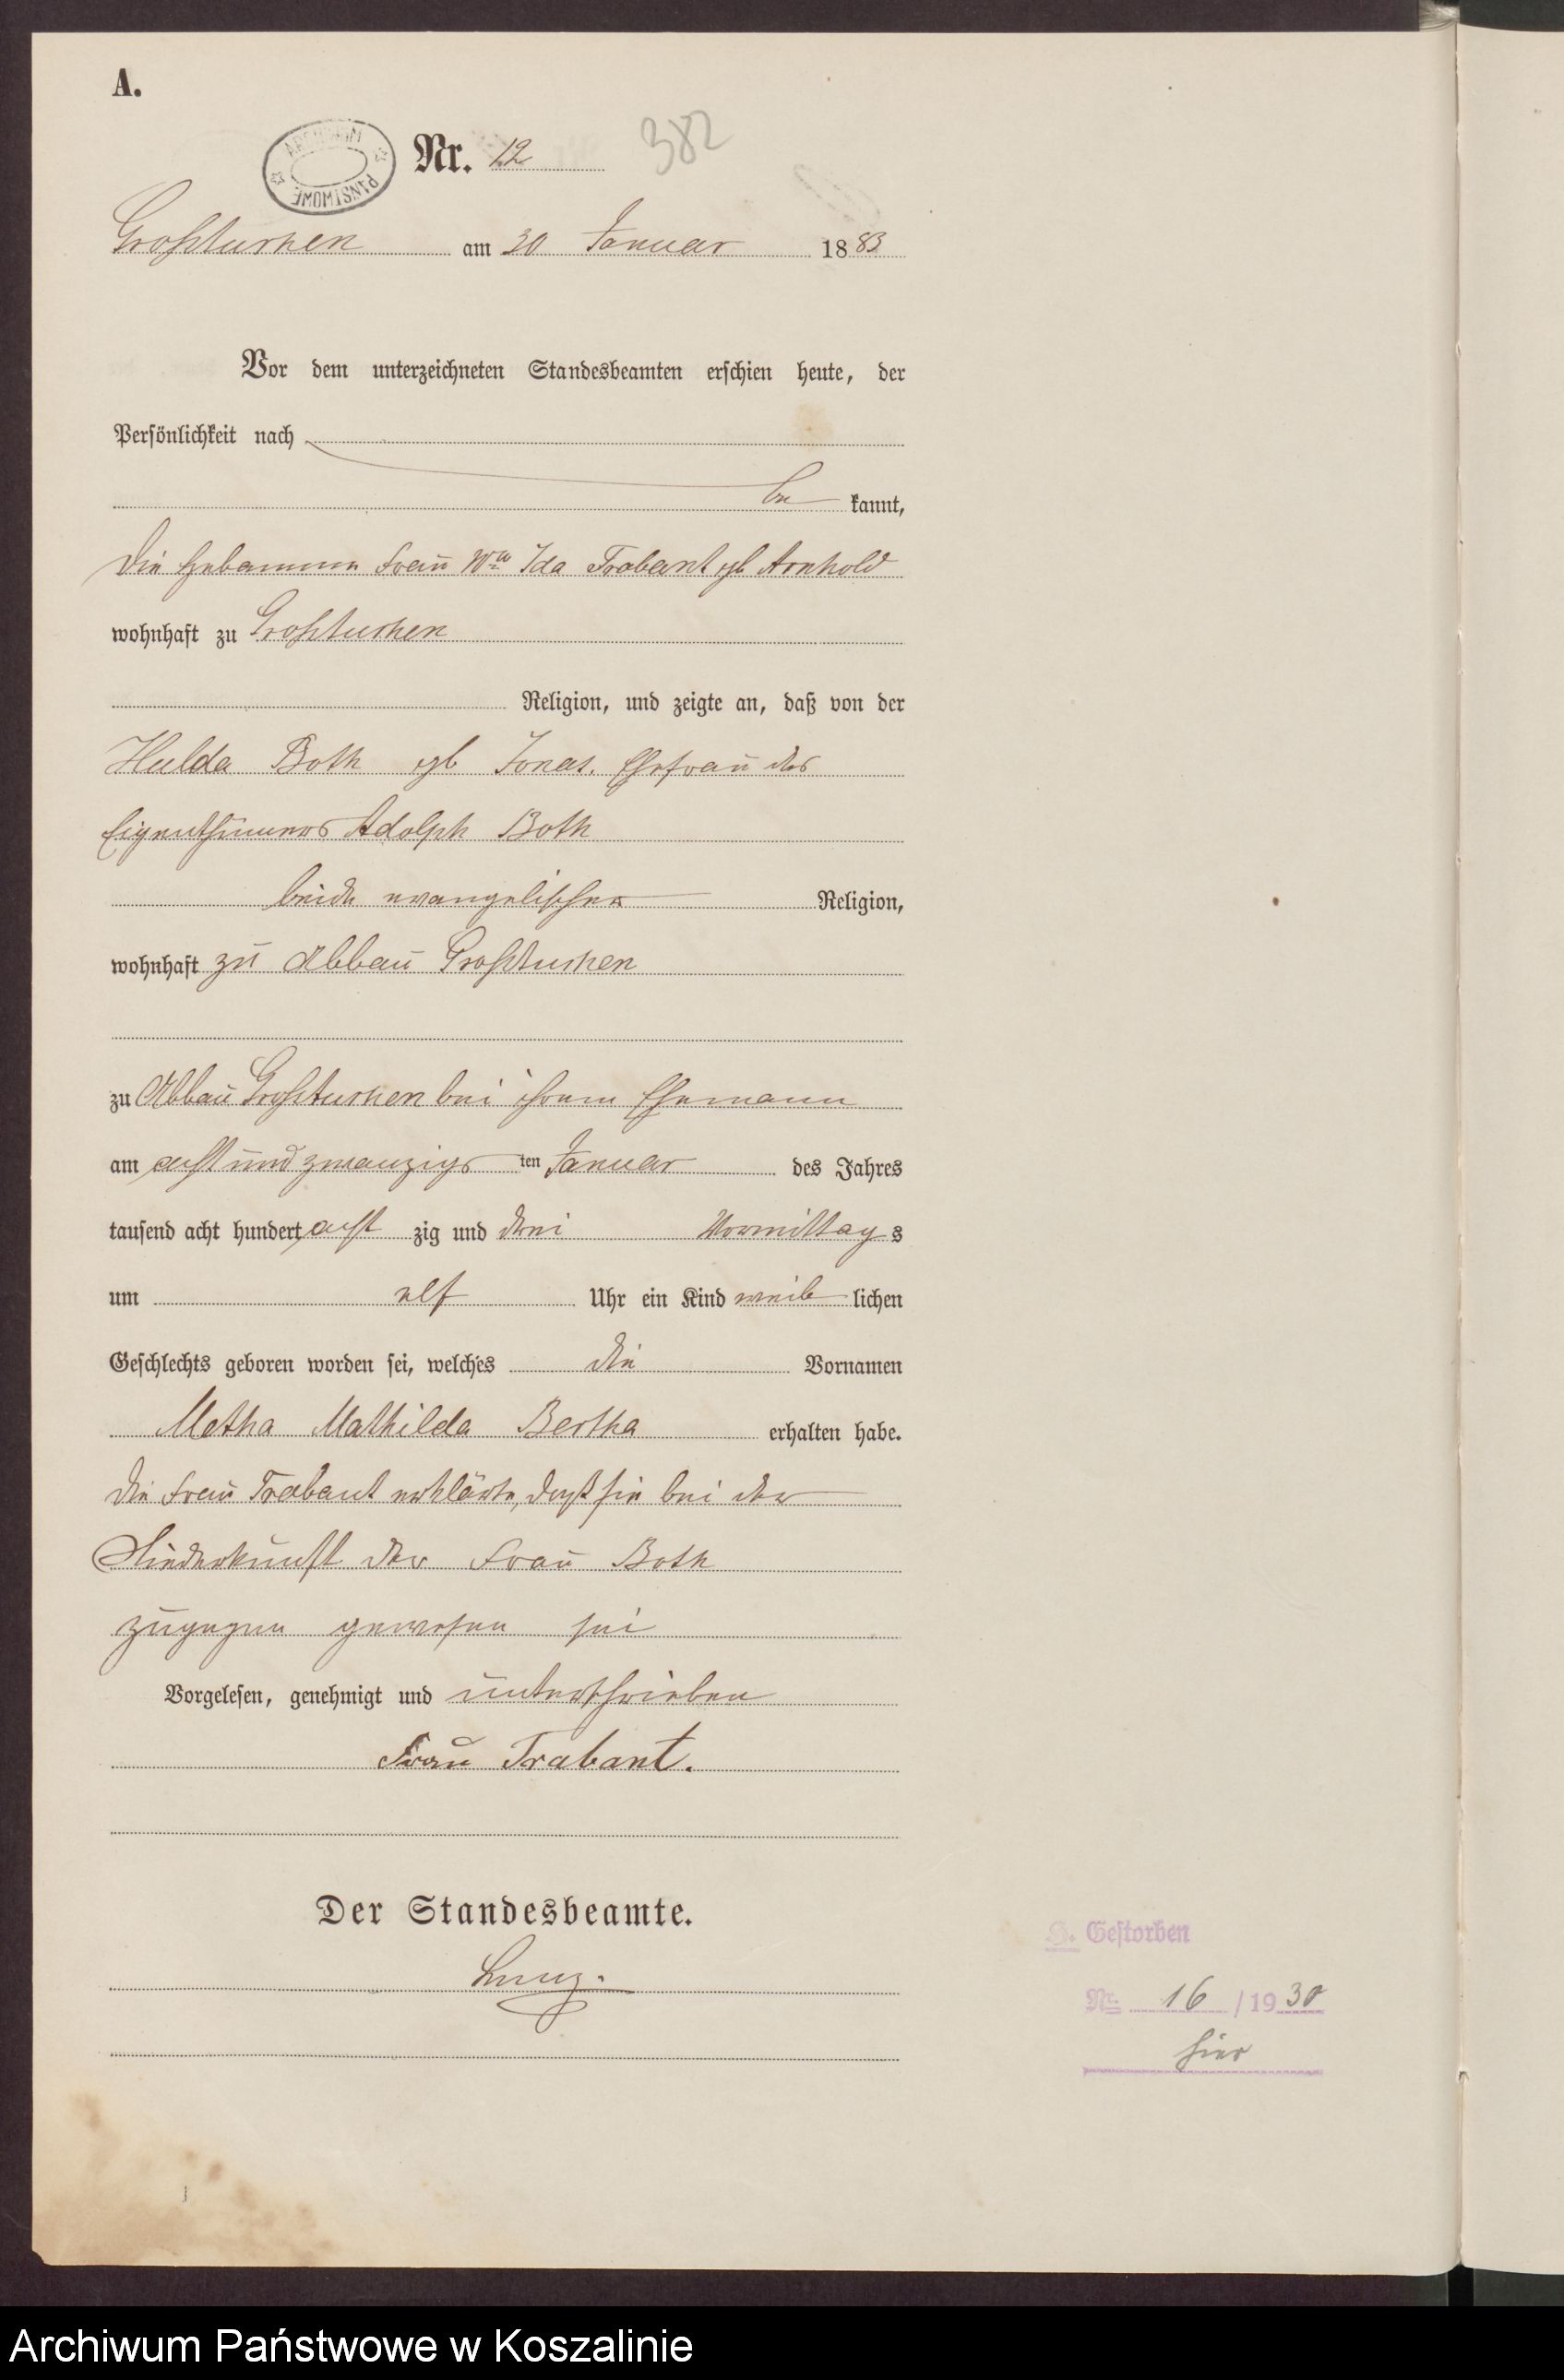 A.
ARCHIWUM PAŃSTWOWE
Nr. 12
382
Großtuchen am 30 Januar 1883
Vor dem unterzeichneten Standesbeamten erschien heute, der
Persönlichkeit nach
be kannt,
die Hebamme Frau Ww Ida Trabant gb Arnhold
wohnhaft zu Großtuchen
Religion, und zeigte an, daß von der
Hulda Both gb Jonas. Ehefrau des
Eigenthümers Adolph Both
beide evangelischer Religion,
wohnhaft zu Abbau Großtuchen
zu Abbau Großtuchen bei ihrem Ehemann
am achtundzwanzigsten Januar des Jahres
tausend acht hundert acht zig und drei Vormittags
um elf Uhr ein Kind weib lichen
Geschlechts geboren worden sei, welches die Vornamen
Metha Mathilda Bertha erhalten habe.
die Frau Trabant erklärte, daß sie bei der
Niederkunft der Frau Both
zugegen gewesen sei
Vorgelesen, genehmigt und unterschrieben
Frau Trabant.
Der Standesbeamte.
Gestorben
Nr. 16 / 1930
hier
Archiwum Państwowe w Koszalinie